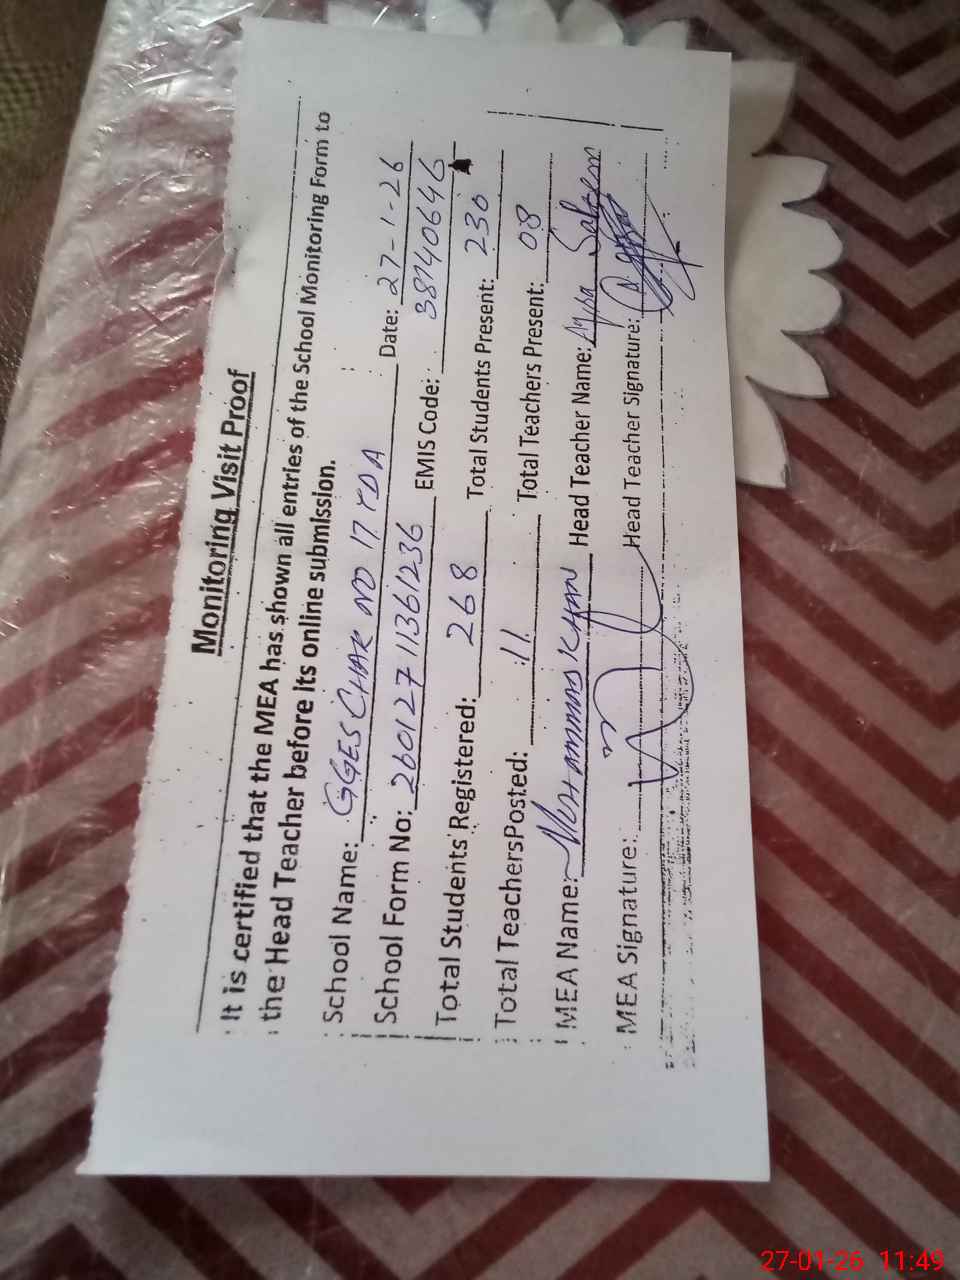 Monitoring Visit Proof
It is certified that the MEA has shown all entries of the School Monitoring Form to
the Head Teacher before its online submission.
School Name: GGES CHAK NO 17 TDA Date: 27-1-26
School Form No: 26012711361236 EMIS Code: 38140646
Total Students' Registered: 268 Total Students Present: 230
Total TeachersPosted: 11 Total Teachers Present: 08
MEA Name: Muhammad Khan Head Teacher Name: Saleem
MEA Signature: Head Teacher Signature:
27-01-26 11:49